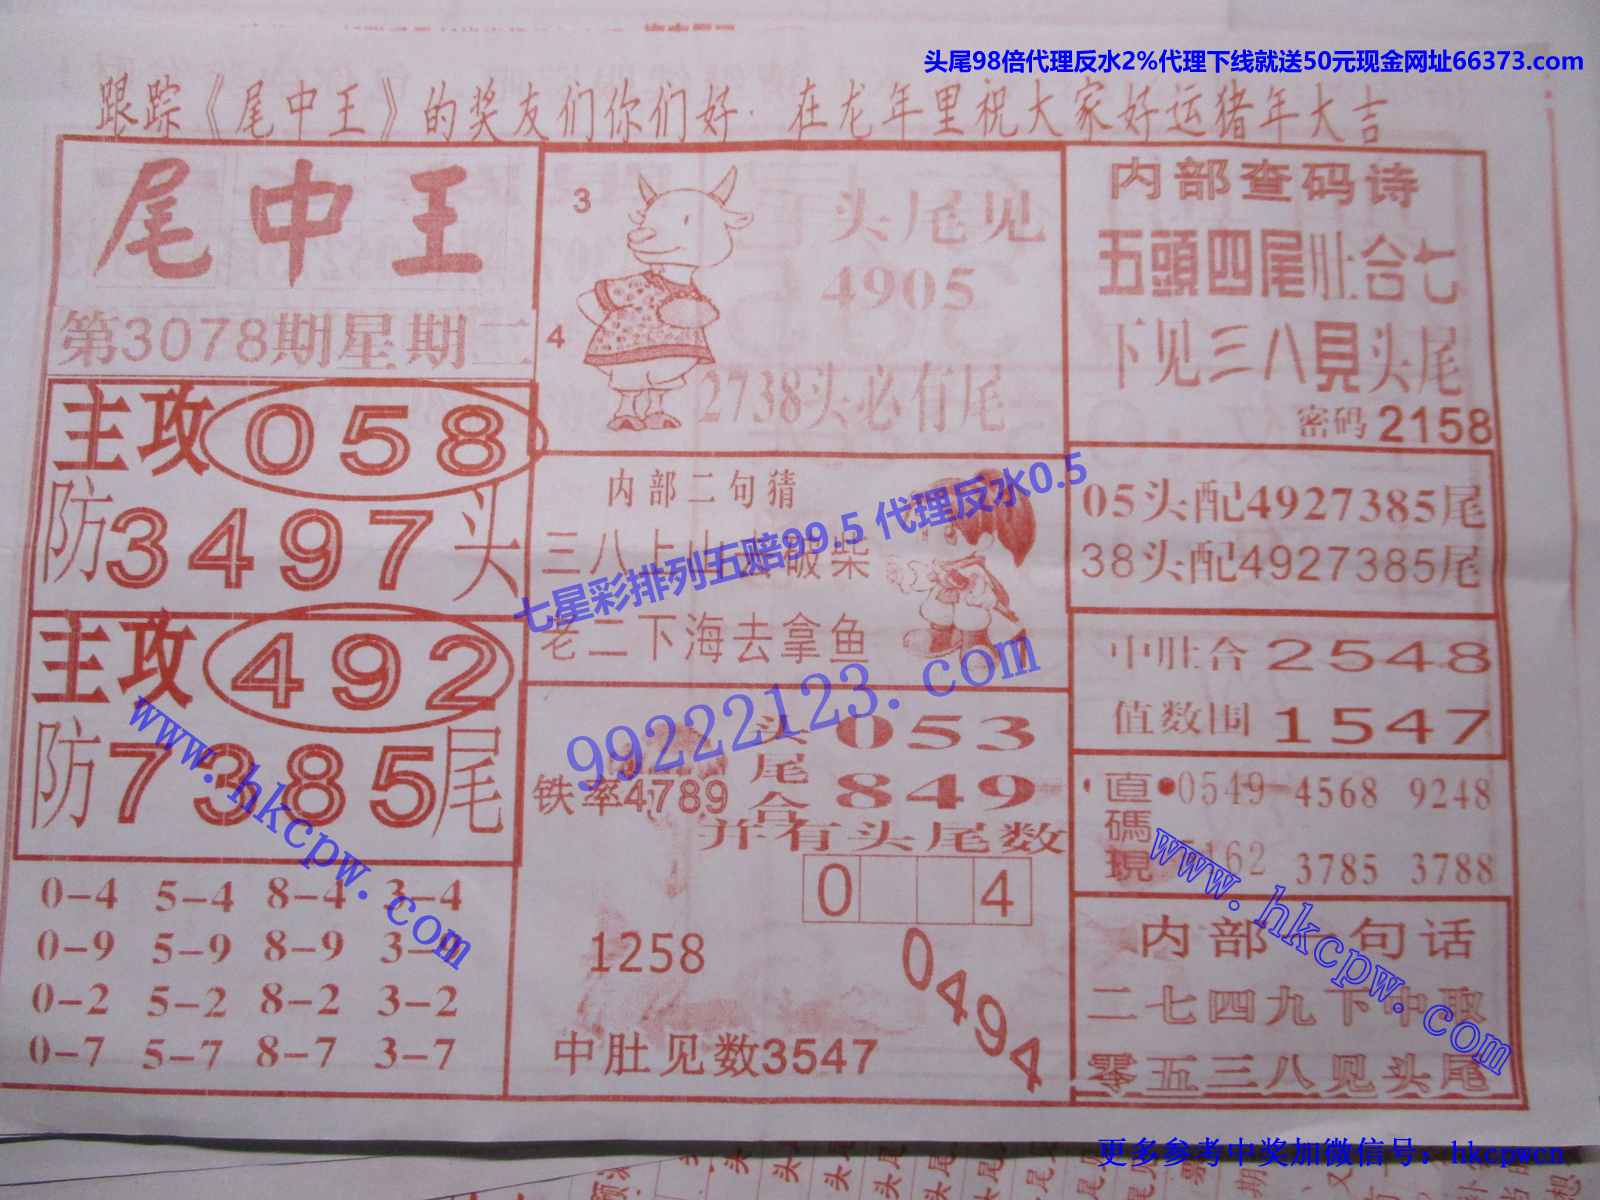 头尾98倍代理反水2%代理下线就送50元现金网址66373.com
跟踪《尾中王》的奖友们你们好·在龙年里祝大家好运猪年大吉
尾中王
第3078期星期二
主攻058
防3497头
主攻492
防7385尾
0-4 5-4 8-4 3-4
0-9 5-9 8-9 3-9
0-2 5-2 8-2 3-2
0-7 5-7 8-7 3-7
3
4
头尾见
4905
2738头必有尾
内部二句猜
三八上山去破柴
老二下海去拿鱼
头053
尾849
合
铁率4789
并有头尾数
0 4
1258
0494
中肚见数3547
内部查码诗
五頭四尾肚合七
下见三八見头尾
密码2158
05头配4927385尾
38头配4927385尾
中肚合2548
值数围1547
直碼現
0549 4568 9248
162 3785 3788
内部一句话
二七四九下中取
零五三八见头尾
七星彩排列五赔99.5 代理反水0.5
99222123.com
www.hkcpw.com
www.hkcpw.com
更多参考中奖加微信号：hkcpwcn